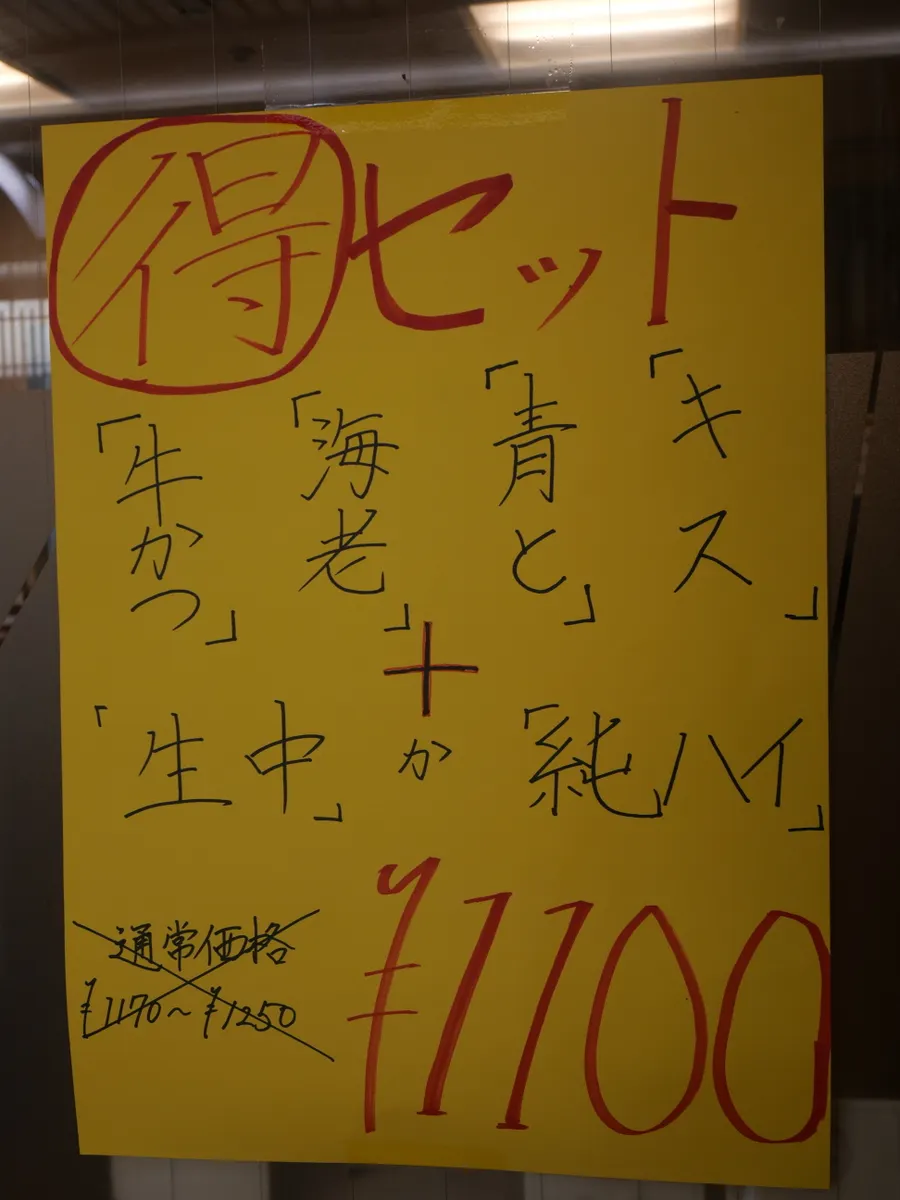 得セット
「キス」
「青と」
「海老」
「牛かつ」
+
「生中」か「純ハイ」
通常価格
¥1170～¥1250
¥1100